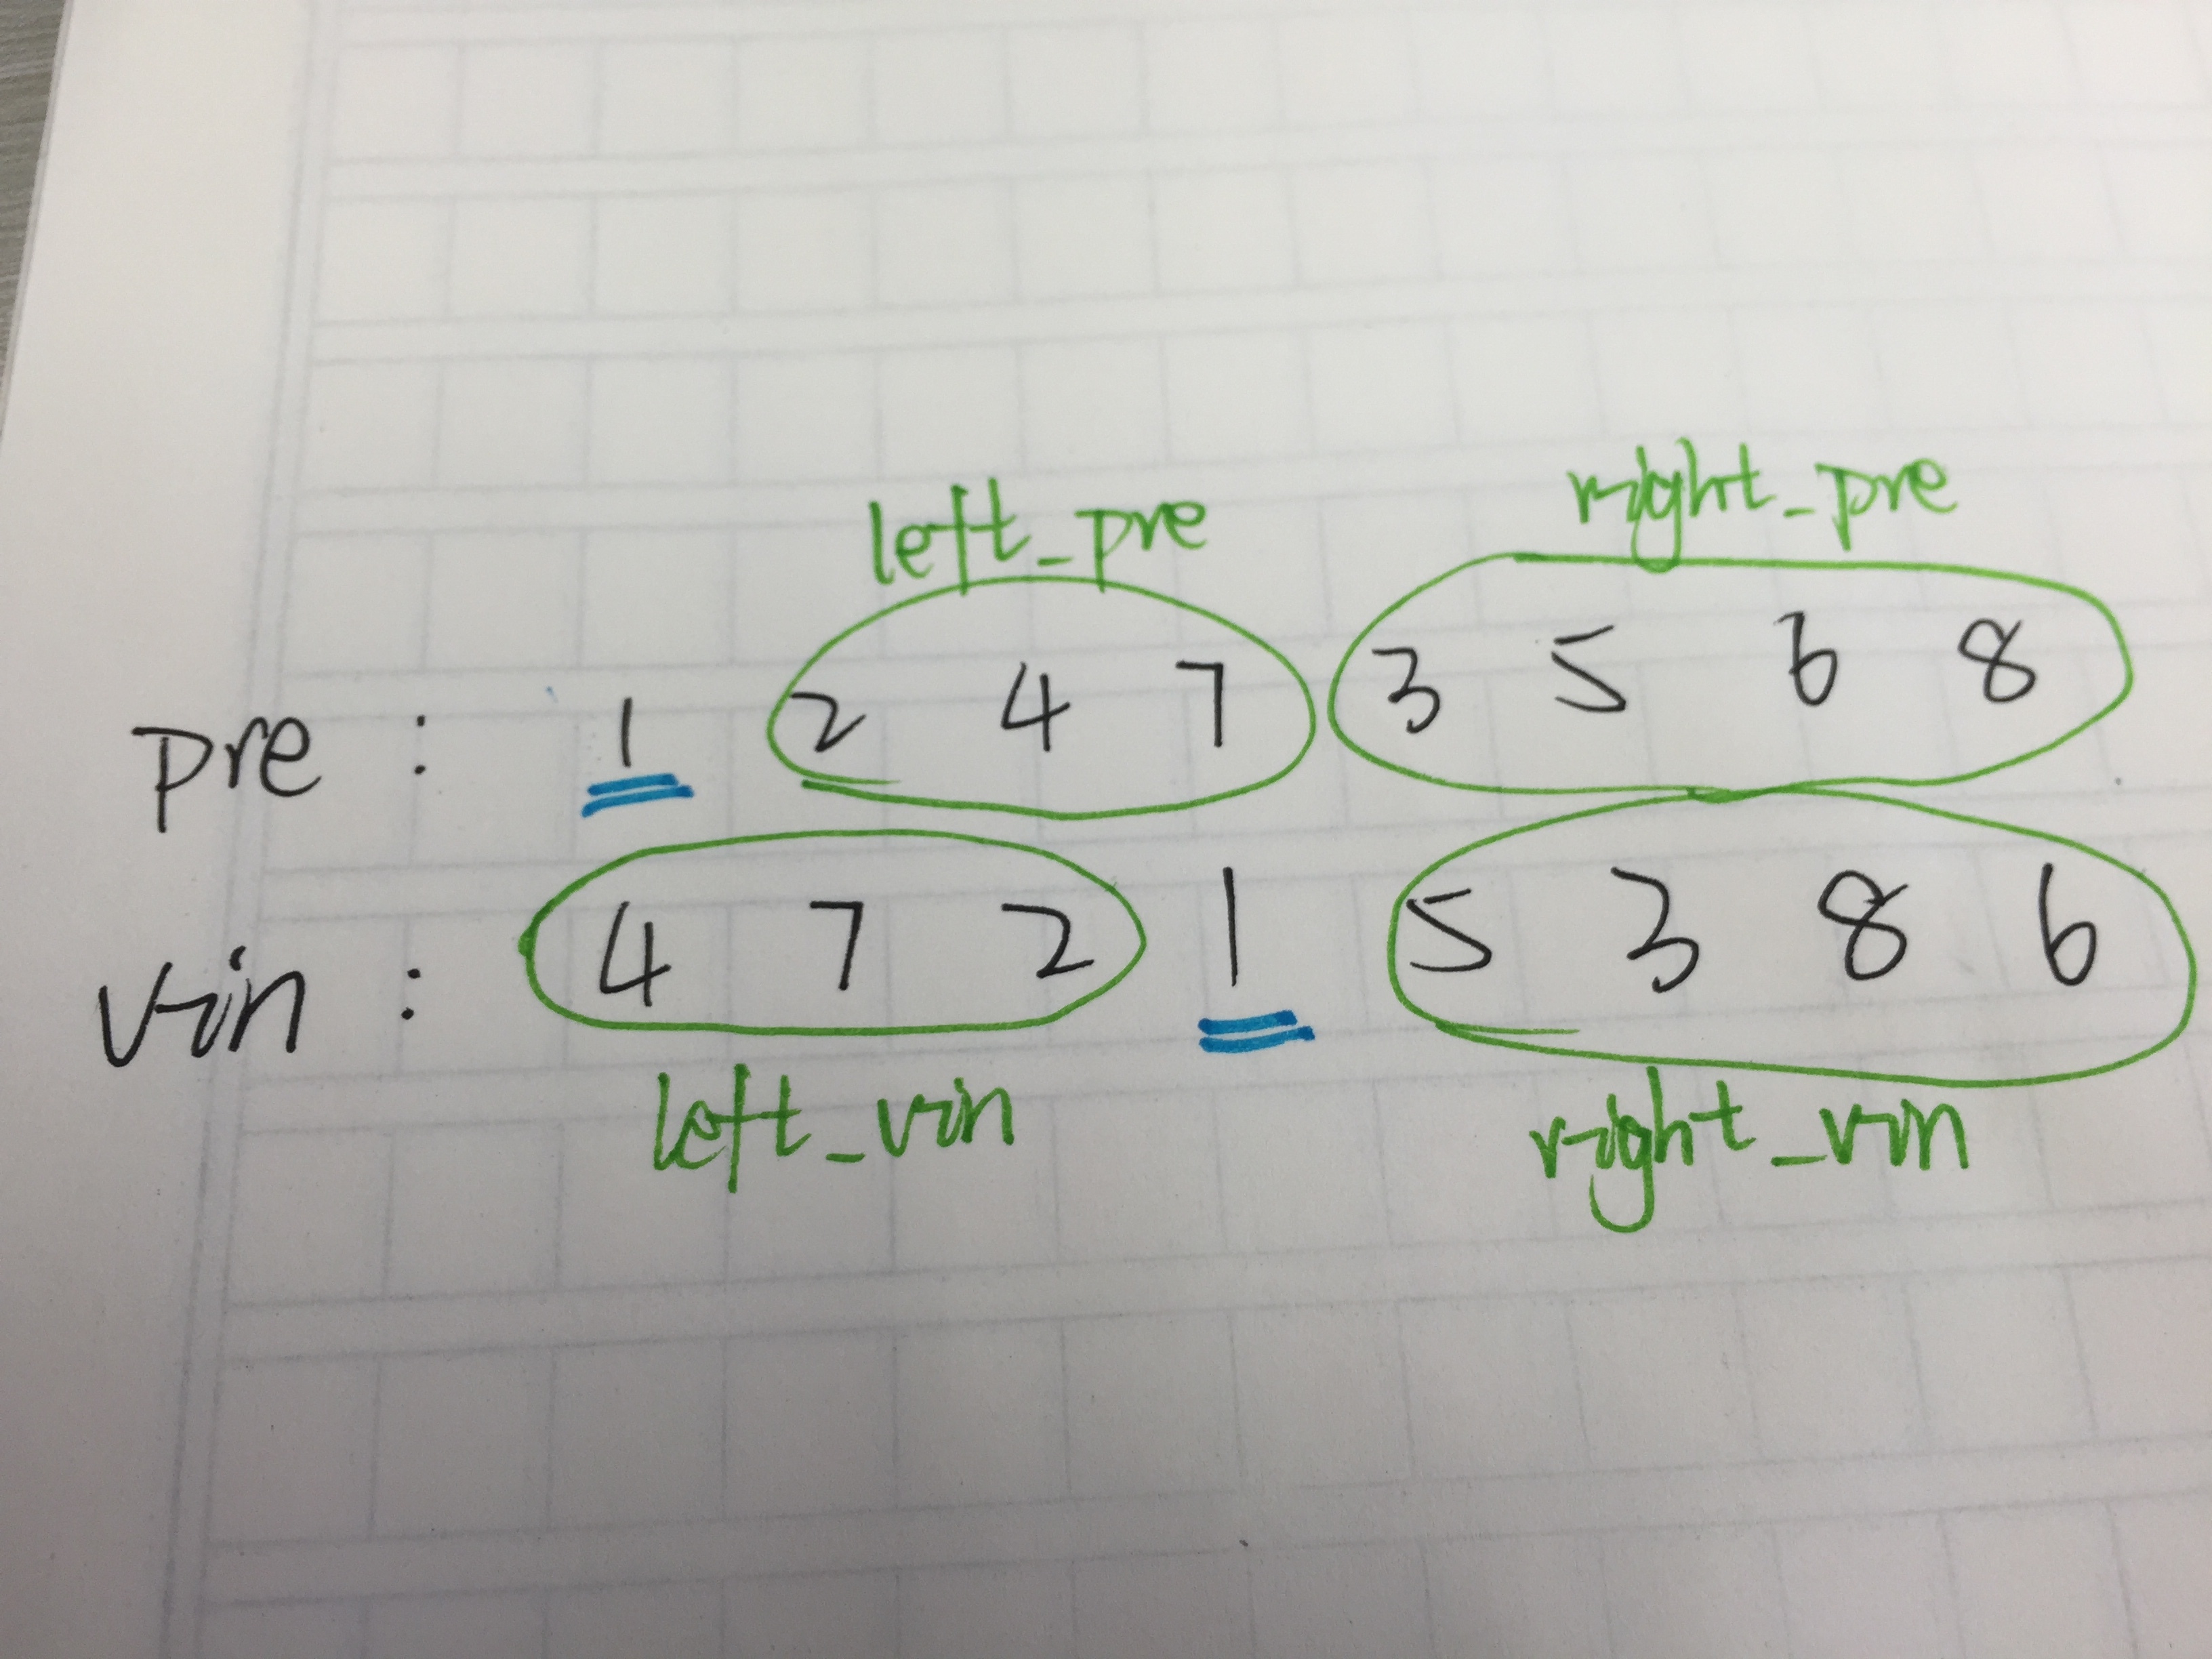 left_pre right_pre
pre : 1 2 4 7 3 5 6 8
vin : 4 7 2 1 5 3 8 6
left_vin right_vin